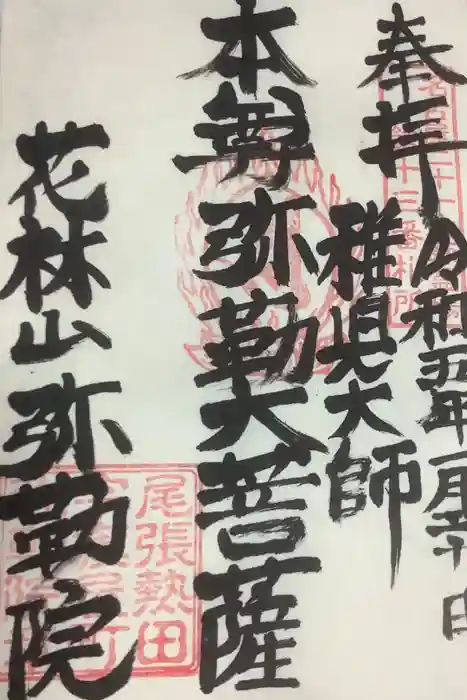 奉拝
令和五年一月
稚児大師
本尊弥勒大菩薩
花林山弥勒院
尾張熱田
十三番札所